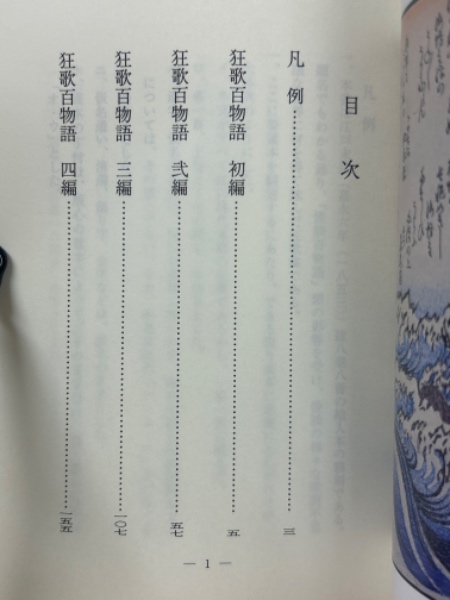 目次
凡例……………………三
狂歌百物語 初編……………………五
狂歌百物語 弐編……………………五七
狂歌百物語 三編……………………一〇七
狂歌百物語 四編……………………一五五
— 1 —